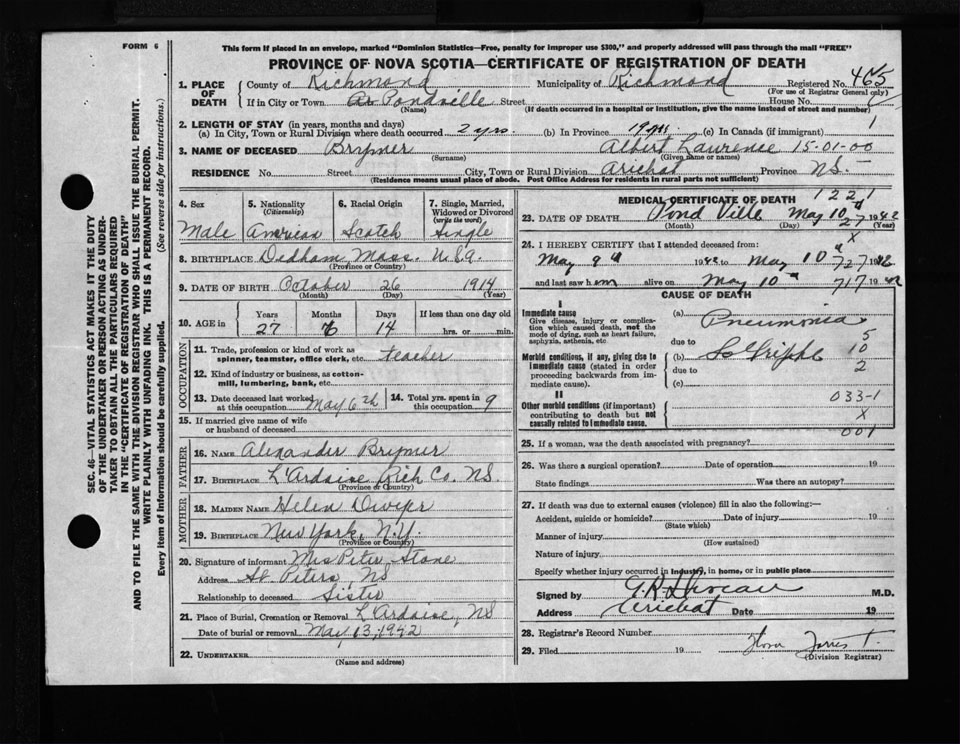 FORM 6
This form if placed in an envelope, marked "Dominion Statistics—Free, penalty for improper use $300," and properly addressed will pass through the mail "FREE"
PROVINCE OF NOVA SCOTIA—CERTIFICATE OF REGISTRATION OF DEATH
SEC. 46—VITAL STATISTICS ACT MAKES IT THE DUTY
OF THE UNDERTAKER OR PERSON ACTING AS UNDER-
TAKER TO OBTAIN ALL THE PARTICULARS REQUIRED
IN THE "CERTIFICATE OF REGISTRATION OF DEATH"
AND TO FILE THE SAME WITH THE DIVISION REGISTRAR WHO SHALL ISSUE THE BURIAL PERMIT.
WRITE PLAINLY WITH UNFADING INK. THIS IS A PERMANENT RECORD.
Every item of information should be carefully supplied. (See reverse side for instructions.)
1. PLACE OF DEATH County of Richmond Municipality of Richmond Registered No. 465
(For use of Registrar General only)
If in City or Town at Pondville Street House No.
(Name) (If death occurred in a hospital or institution, give the name instead of street and number)
2. LENGTH OF STAY (in years, months and days)
(a) In City, Town or Rural Division where death occurred 2 yrs. (b) In Province 19 yrs (c) In Canada (if immigrant) 1
3. NAME OF DECEASED Brymer Albert Lawrence 15-01-00
(Surname) (Given name or names)
RESIDENCE No. Street City, Town or Rural Division Arichat Province NS.
(Residence means usual place of abode. Post Office Address for residents in rural parts not sufficient)
4. Sex 5. Nationality (Citizenship) 6. Racial Origin 7. Single, Married, Widowed or Divorced (write the word)
Male American Scotch Single
8. BIRTHPLACE Dedham, Mass. U.S.A.
(Province or Country)
9. DATE OF BIRTH October 26 1914
(Month) (Day) (Year)
10. AGE in Years Months Days If less than one day old
27 6 14 hrs. or min.
OCCUPATION
11. Trade, profession or kind of work as spinner, teamster, office clerk, etc. teacher
12. Kind of industry or business, as cotton-mill, lumbering, bank, etc.
13. Date deceased last worked at this occupation May 6th 14. Total yrs. spent in this occupation 9
15. If married give name of wife or husband of deceased
FATHER
16. NAME Alexander Brymer
17. BIRTHPLACE L'Ardoise Rich Co. NS.
(Province or Country)
MOTHER
18. MAIDEN NAME Helen
19. BIRTHPLACE New York, N.Y.
(Province or Country)
20. Signature of informant Mrs Peter Stone
Address St. Peters, NS
Relationship to deceased Sister
21. Place of Burial, Cremation or Removal L'Ardoise, NS
Date of burial or removal May 13, 1942
22. UNDERTAKER
(Name and address)
MEDICAL CERTIFICATE OF DEATH 1221
23. DATE OF DEATH Pond Ville May 10th 27 1942
(Month) (Day) (Year)
24. I HEREBY CERTIFY that I attended deceased from: X
May 9th 1942 to May 10th 727 1942
and last saw him alive on May 10th 717 1942
CAUSE OF DEATH
I
Immediate cause
Give disease, injury or complication which caused death, not the mode of dying, such as heart failure, asphyxia, asthenia, etc
(a) Pneumonia
due to 5
Morbid conditions, if any, giving rise to immediate cause (stated in order proceeding backwards from immediate cause).
(b) La Grippe 10
due to 2
(c)
II
Other morbid conditions (if important) contributing to death but not causally related to immediate cause.
033-1
X
001
25. If a woman, was the death associated with pregnancy?
26. Was there a surgical operation? Date of operation 19
State findings Was there an autopsy?
27. If death was due to external causes (violence) fill in also the following:—
Accident, suicide or homicide? Date of injury 19
(State which)
Manner of injury
(How sustained)
Nature of injury
Specify whether injury occurred in industry, in home, or in public place
Signed by M.D.
Address Arichat Date 19
28. Registrar's Record Number
29. Filed 19
(Division Registrar)